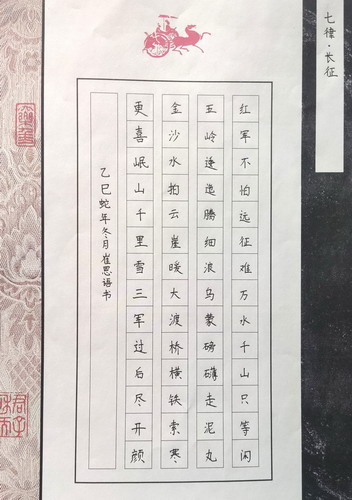 七律·长征
红军不怕远征难万水千山只等闲
五岭逶迤腾细浪乌蒙磅礴走泥丸
金沙水拍云崖暖大渡桥横铁索寒
更喜岷山千里雪三军过后尽开颜
乙巳蛇年冬月崔思语书